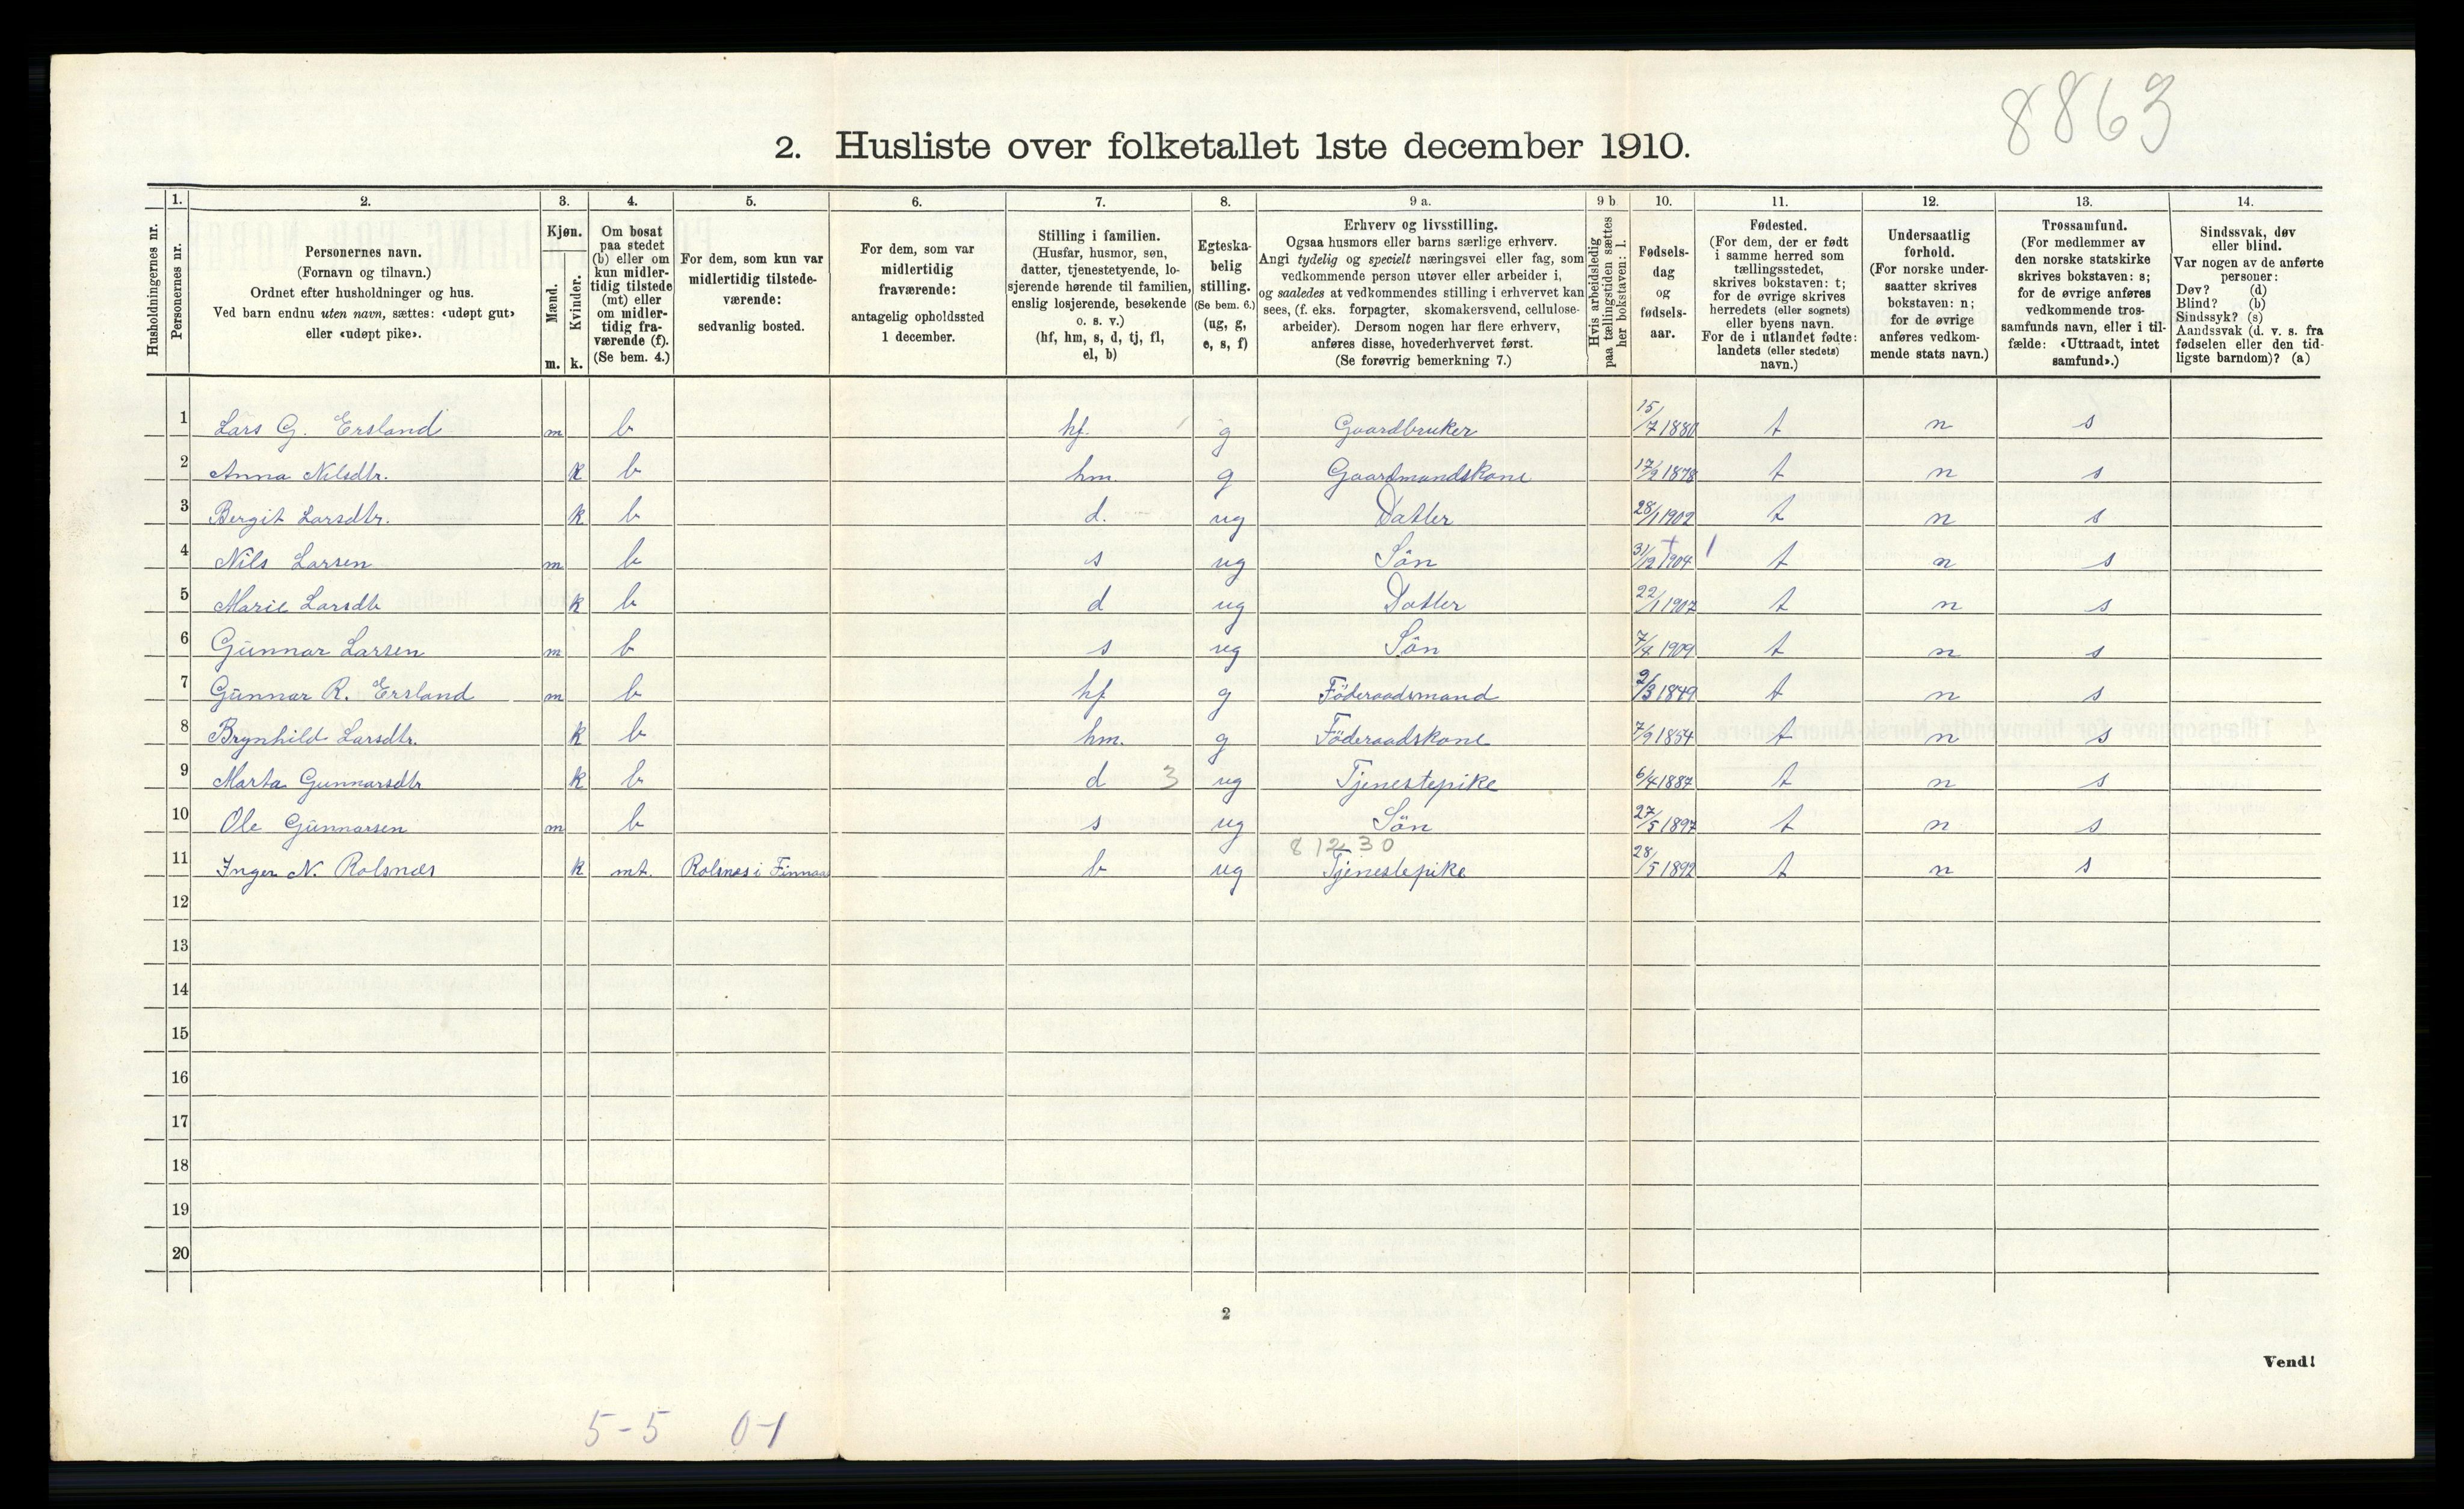 8863
2. Husliste over folketallet 1ste december 1910.
Husholdningernes nr.
1.
Personernes nr.
2.
Personernes navn.
(Fornavn og tilnavn.)
Ordnet efter husholdninger og hus.
Ved barn endnu uten navn, sættes: «udøpt gut»
eller «udøpt pike».
3.
Kjøn.
Mænd.
Kvinder.
m. k.
4.
Om bosat
paa stedet
(b) eller om
kun midler-
tidig tilstede
(mt) eller
om midler-
tidig fra-
værende (f).
(Se bem. 4.)
5.
For dem, som kun var
midlertidig tilstede-
værende:
sedvanlig bosted.
6.
For dem, som var
midlertidig
fraværende:
antagelig opholdssted
1 december.
7.
Stilling i familien.
(Husfar, husmor, søn,
datter, tjenestetyende, lo-
sjerende hørende til familien,
enslig losjerende, besøkende
o. s. v.)
(hf, hm, s, d, tj, fl,
el, b)
8.
Egteska-
belig
stilling.
(Se bem. 6.)
(ug, g,
e, s, f)
9 a.
Erhverv og livsstilling.
Ogsaa husmors eller barns særlige erhverv.
Angi tydelig og specielt næringsvei eller fag, som
vedkommende person utøver eller arbeider i,
og saaledes at vedkommendes stilling i erhvervet kan
sees, (f. eks. forpagter, skomakersvend, cellulose-
arbeider). Dersom nogen har flere erhverv,
anføres disse, hovederhvervet først.
(Se forøvrig bemerkning 7.)
9 b
Hvis arbeidsledig
paa tællingstiden sættes
her bokstaven: l.
10.
Fødsels-
dag
og
fødsels-
aar.
11.
Fødested.
(For dem, der er født
i samme herred som
tællingsstedet,
skrives bokstaven: t;
for de øvrige skrives
herredets (eller sognets)
eller byens navn.
For de i utlandet fødte:
landets (eller stedets)
navn.)
12.
Undersaatlig
forhold.
(For norske under-
saatter skrives
bokstaven: n;
for de øvrige
anføres vedkom-
mende stats navn.)
13.
Trossamfund.
(For medlemmer av
den norske statskirke
skrives bokstaven: s;
for de øvrige anføres
vedkommende tros-
samfunds navn, eller i til-
fælde: «Uttraadt, intet
samfund».)
14.
Sindssvak, døv
eller blind.
Var nogen av de anførte
personer:
Døv? (d)
Blind? (b)
Sindssyk? (s)
Aandssvak (d. v. s. fra
fødselen eller den tid-
ligste barndom)? (a)
1 Lars G. Ersland m b hf. g Gaardbruker 15/7 1880 t n s
2 Anna Nilsdtr. k b hm. g Gaardmandskone 17/2 1878 t n s
3 Bergit Larsdtr. k b d. ug Datter 28/1 1902 t n s
4 Nils Larsen m b s ug Sön 31/12 1904 t n s
5 Marie Larsdtr k b d ug Datter 22/1 1907 t n s
6 Gunnar Larsen m b s ug Sön 7/4 1909 t n s
7 Gunnar R. Ersland m b hf g Föderaadsmand 2/3 1849 t n s
8 Brynhild Larsdtr. k b hm. g Föderaadskone 7/9 1854 t n s
9 Marta Gunnarsdtr k b d 3 ug Tjenestepike 6/4 1887 t n s
10 Ole Gunnarsen m b s ug Sön 27/5 1897 t n s
8 12 30
11 Inger N. Rolsnes k mt. Rolsnes i Finnaas b ug Tjenestepike 28/5 1892 t n s
12
13
14
15
16
17
18
19
20
2
Vend!
5-5 0-1